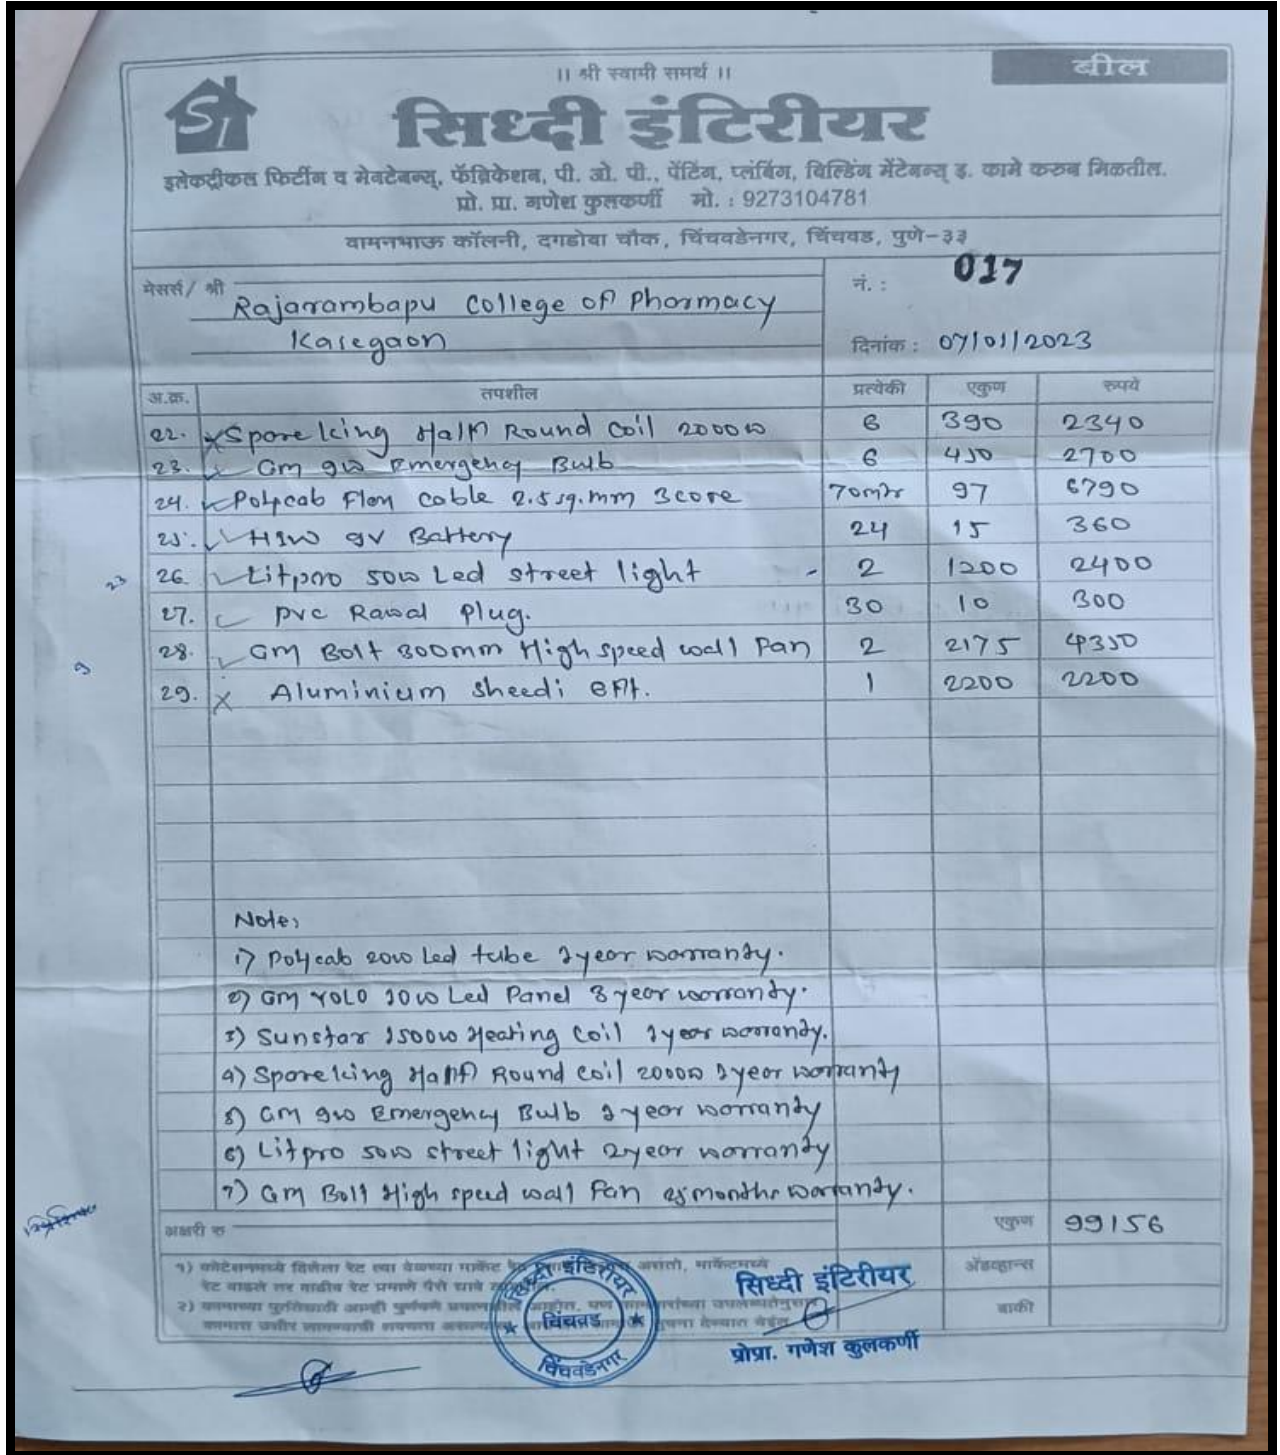 ।। श्री स्वामी समर्थ ।।
बील
SI
सिध्दी इंटिरीयर
इलेक्ट्रीकल फिटींग व मेनटेनन्स्, फॅब्रिकेशन, पी. ओ. पी., पेंटिंग, प्लंबिंग, बिल्डिंग मेंटेनन्स् इ. कामे करून मिळतील.
प्रो. प्रा. गणेश कुलकर्णी मो. : 9273104781
वामनभाऊ कॉलनी, दगडोबा चौक, चिंचवडेनगर, चिंचवड, पुणे-३३
मेसर्स/ श्री Rajarambapu College of Pharmacy
Kasegaon
नं. : 017
दिनांक : 07/01/2023
अ.क्र. तपशील प्रत्येकी एकुण रुपये
22. Spareking Half Round Coil 2000w 6 390 2340
23. Gm 9w Emergency Bulb 6 450 2700
24. Polycab Flex Cable 2.5 sq.mm 3 core 70mtr 97 6790
25. H9w 9V Battery 24 15 360
26. Litpro 50w Led street light - 2 1200 2400
27. PVC Rawal Plug. 30 10 300
28. Gm Bolt 300mm High speed wall Fan 2 2175 4350
29. Aluminium sheedi 6ft. 1 2200 2200
23
9
Note:
1) Polycab 20w Led tube 1 year warranty.
2) Gm YOLO 10w Led Panel 3 year warranty.
3) Sunstar 1500w Heating Coil 1 year warranty.
4) Spareking Half Round Coil 2000w 1 year warranty
5) Gm 9w Emergency Bulb 1 year warranty
6) Litpro 50w street light 2 year warranty
7) Gm Bolt High speed wall Fan 25 months warranty.
अक्षरी रु
एकुण 99156
अ‍ॅडव्हान्स
बाकी
१) कोटेशनमध्ये दिलेला रेट त्या वेळच्या मार्केट असतो, मार्केटमध्ये
रेट वाढले तर वाढीव रेट प्रमाणे पैसे द्यावे
सिध्दी इंटिरीयर
चिंचवड
चिंचवडेनगर
सिध्दी इंटिरीयर
प्रोप्रा. गणेश कुलकर्णी